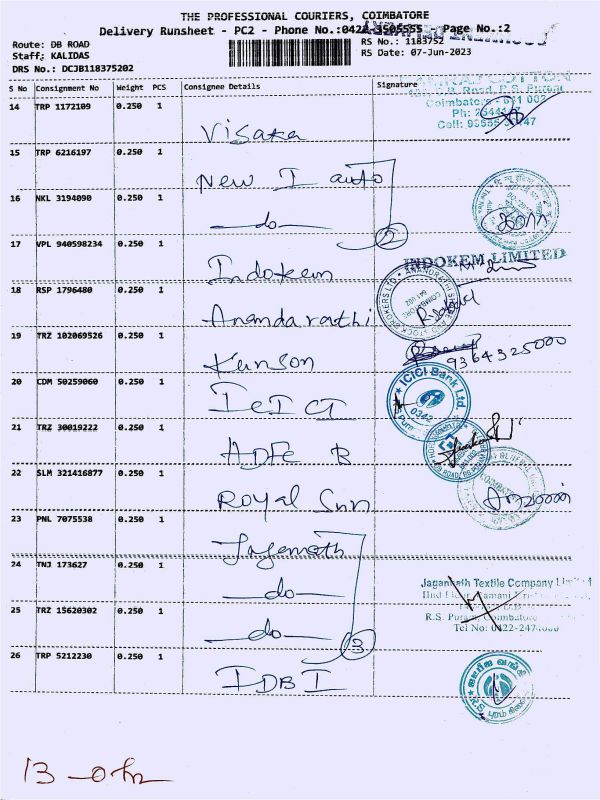 THE PROFESSIONAL COURIERS, COIMBATORE
Delivery Runsheet - PC2 - Phone No.:0422-3505555 Page No.:2
Route: DB ROAD
RS No.: 1183752
Staff; KALIDAS
RS Date: 07-Jun-2023
DRS No.: DCJB118375202
S No Consignment No Weight PCS Consignee Details Signature
14 TRP 1172109 0.250 1 Visaka
COTTON
Road, R.S. Puram
Coimbatore - 641 002
Ph:
Cell:
15 TRP 6216197 0.250 1 New I auto
16 NKL 3194090 0.250 1 -do- 2
17 VPL 940598234 0.250 1 Indokem
INDOKEM LIMITED
18 RSP 1796480 0.250 1 Anandarathi
ANAND RATHI SHARE AND STOCK BROKERS LTD
COIMBATORE
641 002
19 TRZ 102069526 0.250 1 Kenson 9364325000
20 CDM 50259060 0.250 1 ICICI
ICICI Bank Ltd.
0342
21 TRZ 30019222 0.250 1 HDFC B
22 SLM 321416877 0.250 1 Royal Sun
சரவணன்
23 PNL 7075538 0.250 1 Jagennath
24 TNJ 173627 0.250 1 -do-
Jagannath Textile Company Limited
25 TRZ 15620302 0.250 1 -do- 3
R.S. Puram, Coimbatore
Tel No: 0422-24
26 TRP 5212230 0.250 1 IDBI
ஐடிபிஐ வங்கி
13